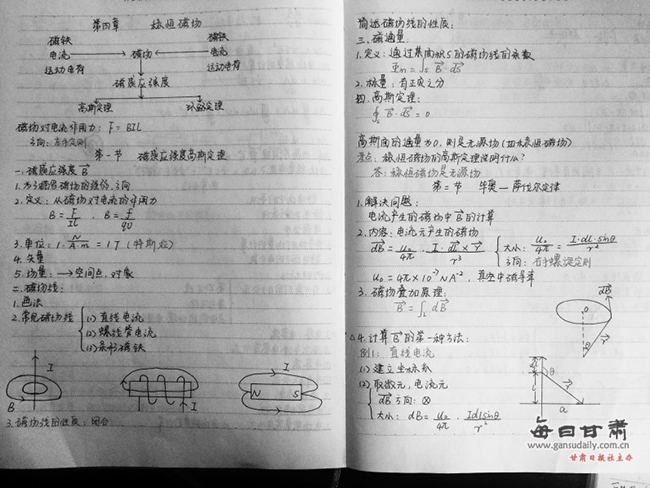 第四章 稳恒磁场
磁铁 磁铁
电流 → 磁场 ← 电流
运动电荷 运动电荷
磁感应强度
高斯定理 环路定理
磁场对电流作用力: F=BIL
方向: 左手定则
第一节 磁感应强度高斯定理
一.磁感应强度 B
2.定义: 从磁场对电流的作用力
B = F/IL , B = f/qv
3.单位: 1 N/A·m = 1T (特斯拉)
4.矢量
5.场量: → 空间点.对象
二.磁场线:
1.画法
2.常见磁场线
(1) 直线电流
(2) 螺线管电流
(3) 条形磁铁
I
B
I
I
N S
I
3.磁场线的性质: 闭合
简述磁场线的性质:
三.磁通量:
1.定义: 通过某面积S的磁场线的条数
Φm = ∫s B·dS
2.标量: 有正负之分
四.高斯定理:
∮s B·dS = 0
高斯面的通量为0, 则是无源场 (如稳恒磁场)
考点: 稳恒磁场的高斯定理说明什么?
答: 稳恒磁场是无源场
第二节 毕奥—萨伐尔定律
1.解决问题:
电流产生的磁场中B的计算
2.内容: 电流元产生的磁场
dB = u₀/4π · I·dl×r/r³
大小: u₀/4π = I·dl·sinθ/r²
方向: 右手螺旋定则
u₀ = 4π×10⁻⁷ NA⁻², 真空中磁导率
3.磁场叠加原理:
B = ∫L dB
dB
r
θ
△4.计算B的第一种方法:
例1: 直线电流
(1) 建立坐标系
(2) 取微元, 电流元
dB方向: ⊗
大小: dB = u₀/4π · Idlsinθ/r²
θ
r
a
每日甘肃
www.gansudaily.com.cn
甘肃日报社主办